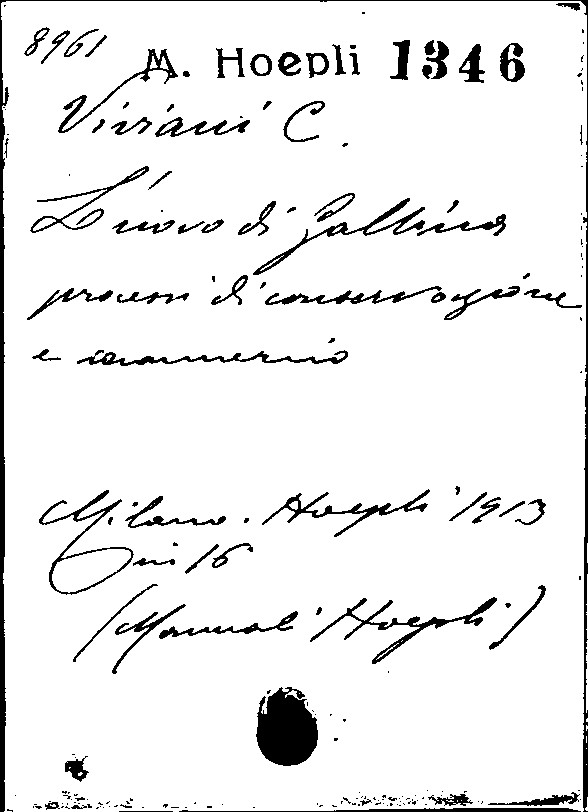 8961 M. Hoepli 1346
Viviani C.
L'uovo di Gallina
processi di conservazione
e commercio
Milano. Hoepli 1913
in 16
(Manuali Hoepli)